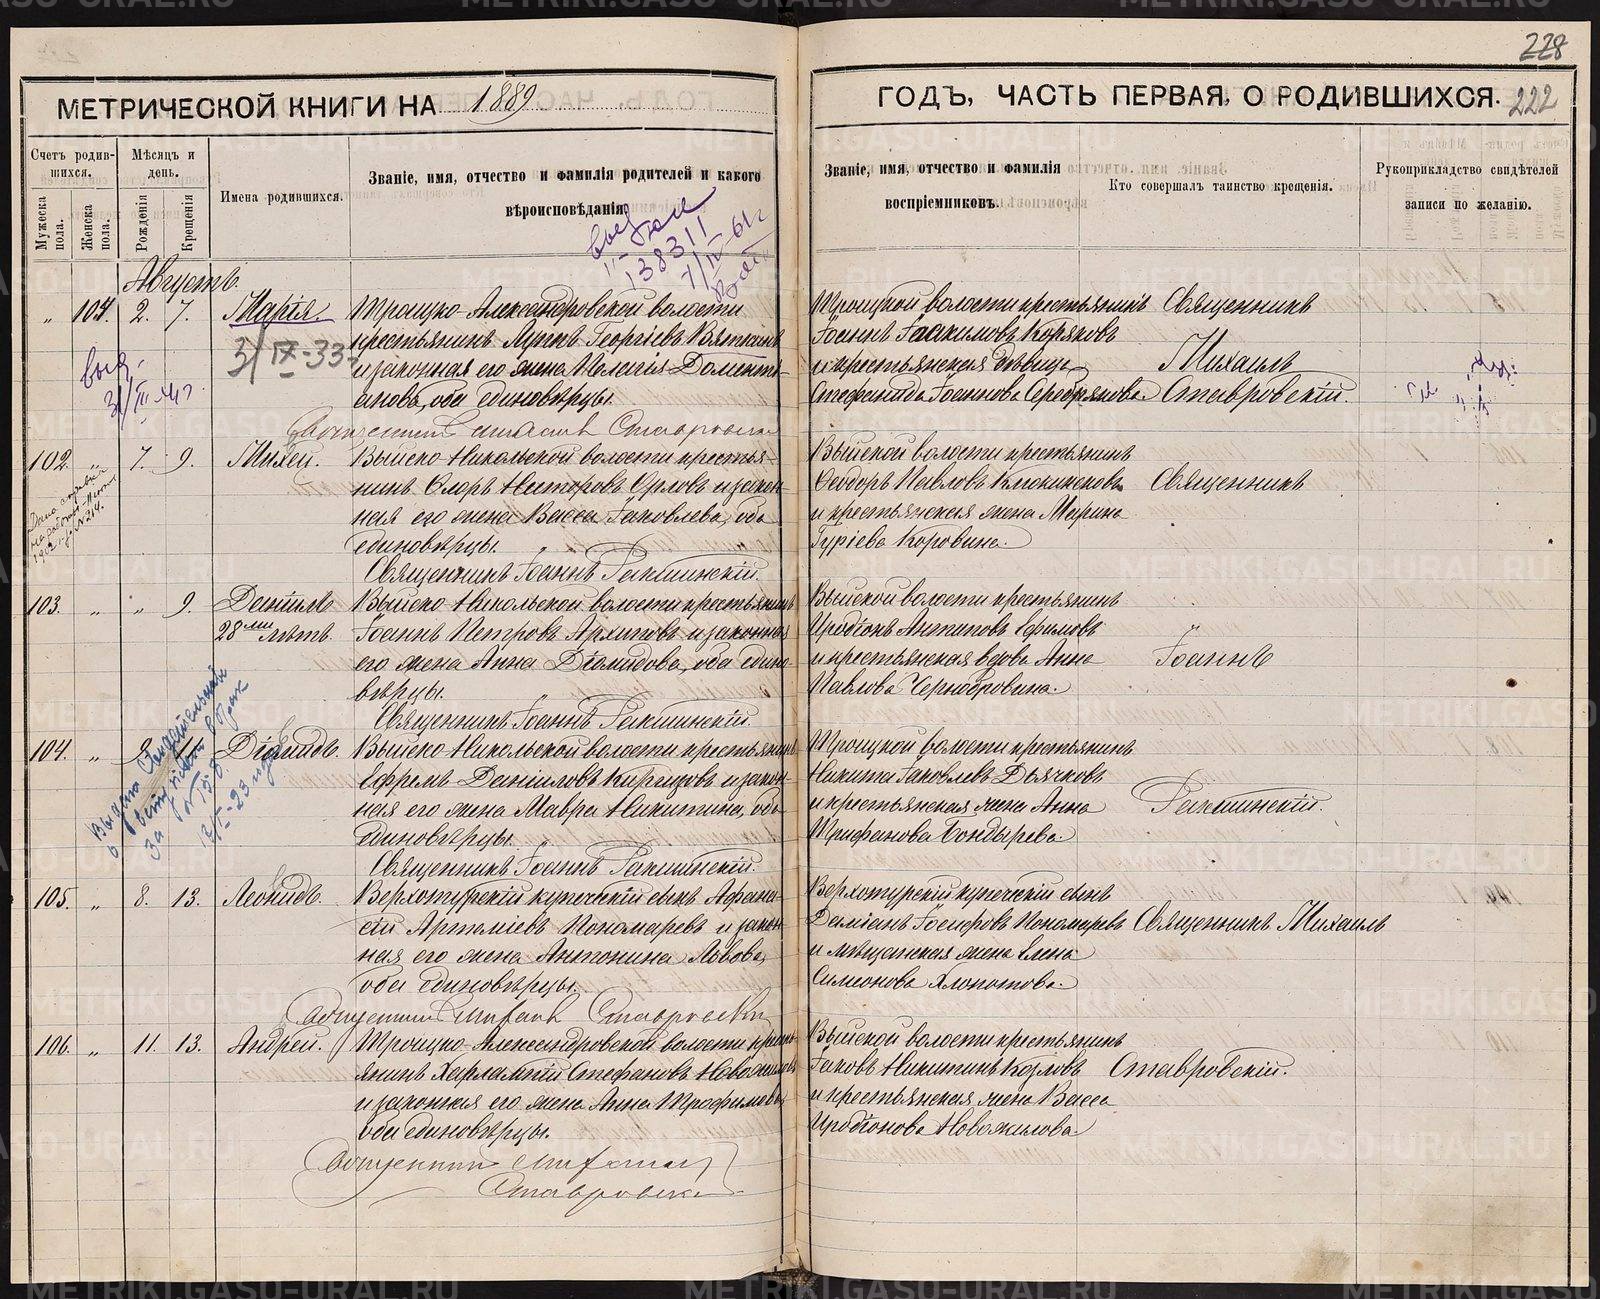 228
МЕТРИЧЕСКОЙ КНИГИ НА 1889
ГОДЪ, ЧАСТЬ ПЕРВАЯ, О РОДИВШИХСЯ.
222
Счетъ родив-
шихся.
Мужеска
пола.
Женска
пола.
Мѣсяцъ и
день.
Рожденія
Крещенія
Имена родившихся.
Званіе, имя, отчество и фамилія родителей и какого
вѣроисповѣданія.
Званіе, имя, отчество и фамилія
воспріемниковъ.
Кто совершалъ таинство крещенія.
Рукоприкладство свидѣтелей
записи по желанію.
138311
Августъ.
„ 107. 2. 7. Марія.
3/IX-33
Троицко-Александровской волости
крестьянинъ Георгіевъ Вяткинъ
и законная его жена Пелагія Доменті-
анова, оба единовѣрцы.
Троицкой волости крестьянинъ
Іоаннъ Іоакимовъ Коряковъ
и крестьянская дѣвица
Стефанида Іоаннова Серебрякова.
Священникъ
Михаилъ
Ставровскій.
102. „ 7. 9. Михей.
Выйско-Никольской волости крестья-
нинъ Флоръ Несторовъ Орловъ и закон-
ная его жена Васса Іаковлева, оба
единовѣрцы.
Священникъ Іоаннъ
Выйской волости крестьянинъ
Ѳеодоръ Павловъ
и крестьянская жена Марина
Гуріева Коровина.
Священникъ
103. „ „ 9. Даніилъ
28ми лѣтъ.
Выйско-Никольской волости крестьянинъ
Іоаннъ Петровъ Архиповъ и законная
его жена Анна Діомидова, оба едино-
вѣрцы.
Священникъ Іоаннъ
Выйской волости крестьянинъ
Иродіонъ Антиповъ Ефимовъ
и крестьянская вдова Анна
Павлова Чернобровина.
Іоаннъ
104. „ Діомидъ.
Выйско-Никольской волости крестьянинъ
Ефремъ Даниловъ Киргизовъ и закон-
ная его жена Мавра Никитина, оба
единовѣрцы.
Священникъ Іоаннъ
Троицкой волости крестьянинъ
Никита Іаковлевъ Дьячковъ
и крестьянская жена Анна
Трифанова Бондырева.
105. „ 8. 13. Леонидъ.
Верхотурскій купеческій сынъ Афана-
сій Артеміевъ Пономаревъ и закон-
ная его жена Антонина Львова,
оба единовѣрцы.
Верхотурскій купеческій сынъ
Даміанъ Іосифовъ Пономаревъ
и мѣщанская жена Елена
Симеонова Хлопотова.
Священникъ Михаилъ
106. „ 11. 13. Андрей.
Троицко-Александровской волости кресть-
янинъ Харлампій Стефановъ Новожиловъ
и законная его жена Анна Трофимова,
оба единовѣрцы.
Выйской волости крестьянинъ
Іаковъ Никитинъ Козловъ
и крестьянская жена Васса
Иродіонова Новожилова
Ставровскій.
METRIKI.GASO-URAL.RU